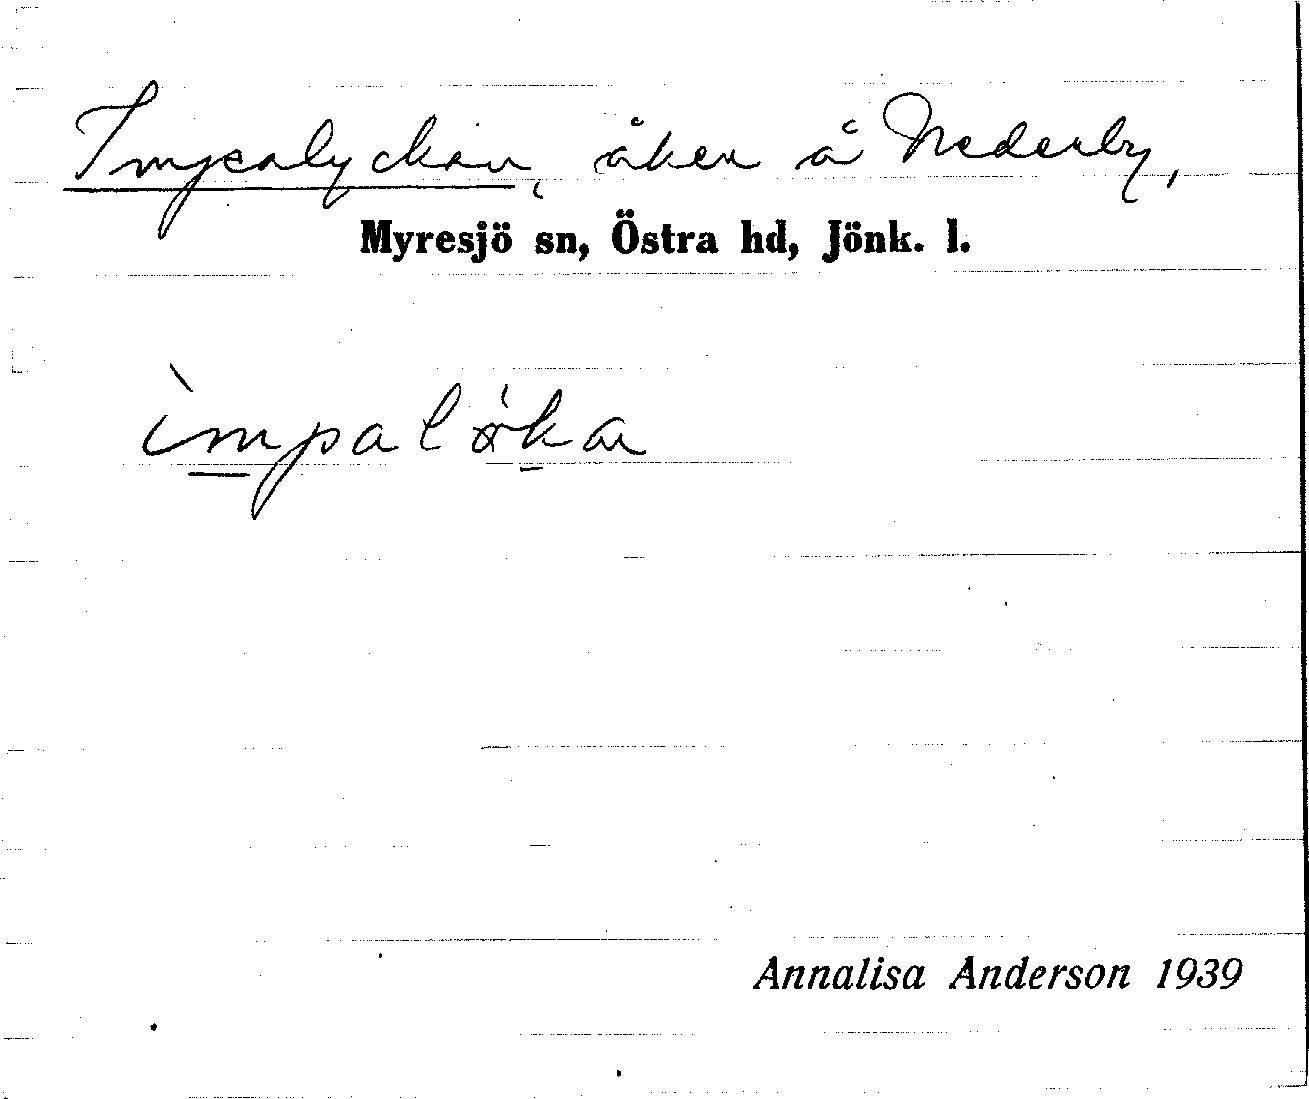 Impalyckan, åker å Nederby,
Myresjö sn, Östra hd, Jönk. l.
ìmpalø̀ka
Annalisa Anderson 1939